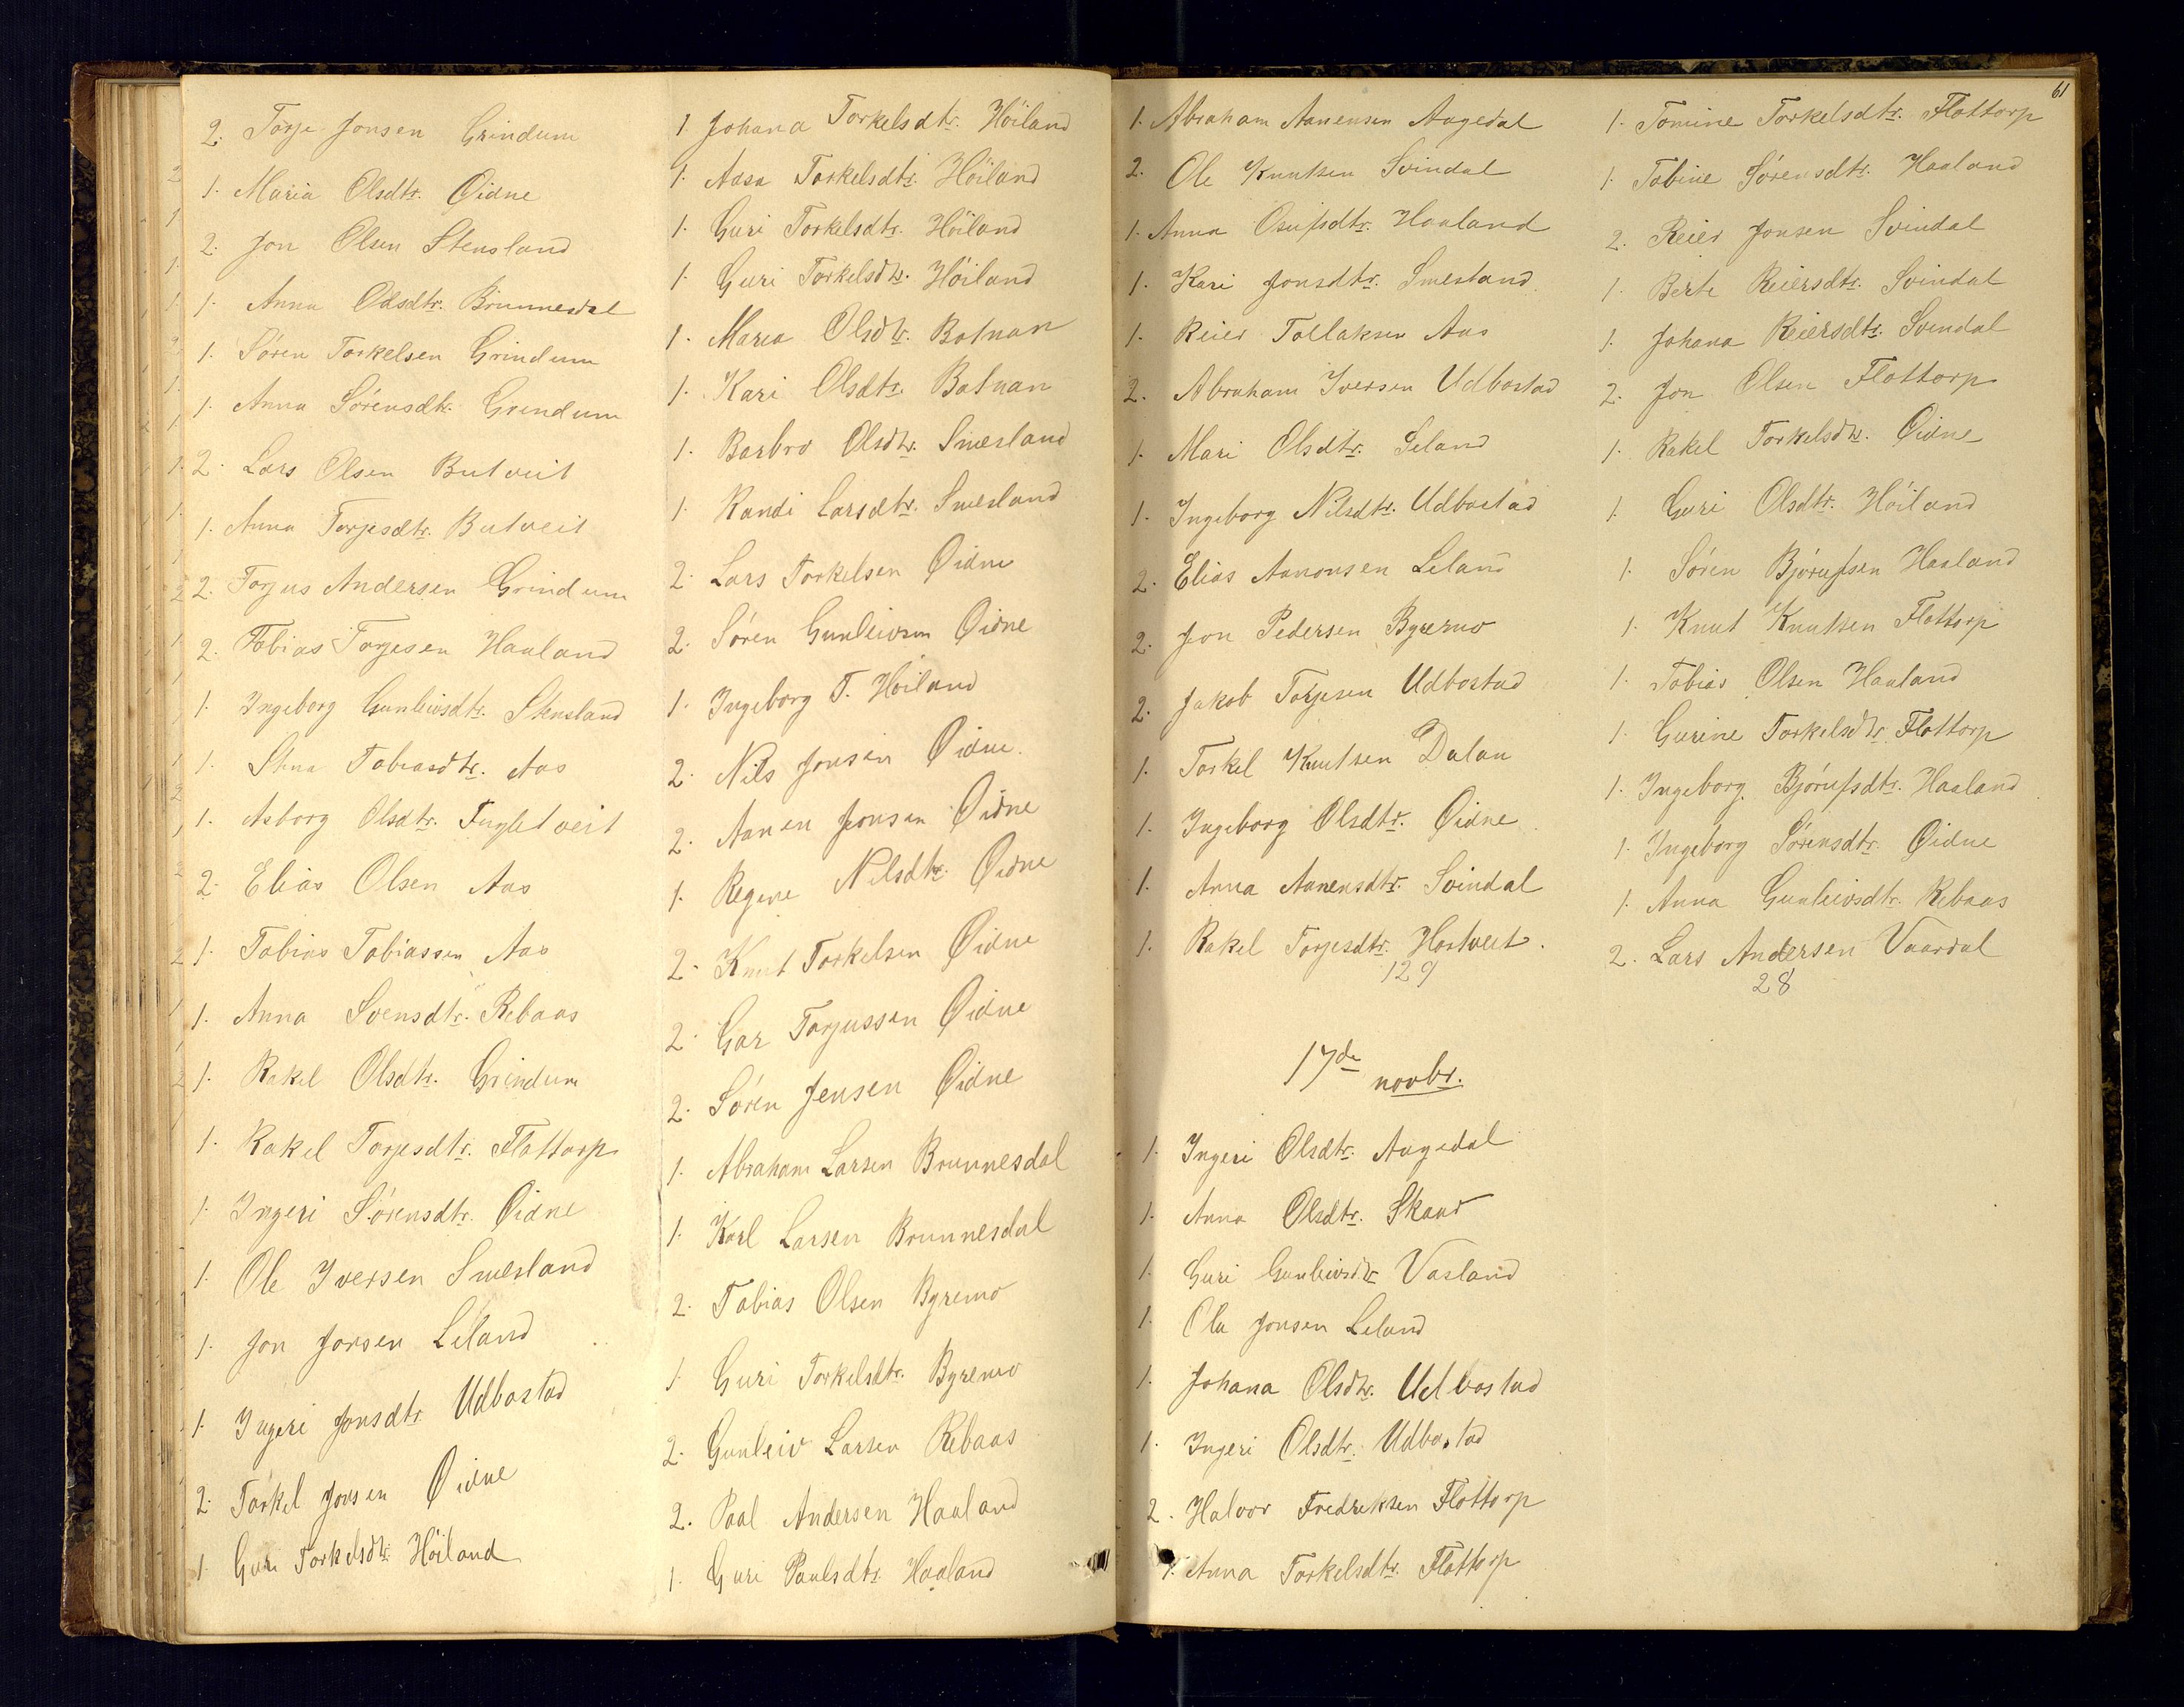 2. Torje Jonsen Grindum
1. Maria Olsdtr. Øidne
2. Jon Olsen Stensland
1. Anna Olsdtr. Brunnesdal
1. Sören Torkelsen Grindum
1. Anna Sörensdtr. Grindum
2. Lars Olsen Butveit
1. Anna Torjesdtr. Butveit
2. Torjus Andersen Grindum
2. Tobias Torjesen Haaland
1. Ingeborg Gunleivsdtr. Stensland
1. Stina Tobiasdtr. Aas
1. Asborg Olsdtr. Fugletveit
2. Elias Olsen Aas
1. Tobias Tobiassen Aas
1. Anna Svensdtr. Rebaas
1. Rakel Olsdtr. Grindum
1. Rakel Torjesdtr. Flottorp
1. Ingeri Sörensdtr. Øidne
1. Ole Iversen Smesland
1. Jon Jonsen Leland
1. Ingeri Jonsdtr. Udbostad
2. Torkel Jonsen Øidne
1. Guri Torkelsdtr. Höiland
1. Johana Torkelsdtr. Höiland
1. Aasa Torkelsdtr. Höiland
1. Guri Torkelsdtr. Höiland
1. Guri Torkelsdtr. Höiland
1. Maria Olsdtr. Botnan
1. Kari Olsdtr. Botnan
1. Barbro Olsdtr. Smesland
1. Randi Larsdtr. Smesland
2. Lars Torkelsen Øidne
2. Sören Gunleivsen Øidne
1. Ingeborg T. Höiland
2. Nils Jonsen Øidne.
2. Aanen Jonsen Øidne
1. Regine Nilsdtr. Øidne
2. Knut Torkelsen Øidne
2. Gar Torjussen Øidne
2. Sören Jensen Øidne
1. Abraham Larsen Brunnesdal
1. Karl Larsen Brunnesdal
2. Tobias Olsen Byremo
1. Guri Torkelsdtr. Byremo
2. Gunleiv Larsen Rebaas
2. Paal Andersen Haaland
1. Guri Paulsdtr. Haaland
1. Abraham Aanensen Aagedal
2. Ole Knutsen Svindal
1. Anna Osufsdtr. Haaland
1. Kari Jonsdtr. Smesland
1. Reier Tollaksen Aas
2. Abraham Iversen Udbostad
1. Mari Olsdtr. Leland
1. Ingeborg Nilsdtr. Udbostad
2. Elias Aanonsen Leland
2. Jon Pedersen Byremo
2. Jakob Torjesen Udbostad
1. Torkel Knutsen Dalan
1. Ingeborg Olsdtr. Øidne
1. Anna Aanensdtr. Svindal
1. Rakel Torjesdtr. Hortveit.
129
17de novbr.
1. Ingeri Olsdtr. Aagedal
1. Anna Olsdtr. Skaar
1. Guri Gunleivsdtr Vasland
1. Ola Jonsen Leland
1. Johana Olsdtr. Udbostad
1. Ingeri Olsdtr. Udbostad
2. Halvor Fredriksen Flottorp
1. Anna Torkelsdtr. Flottorp
61
1. Tomine Torkelsdtr. Flottorp
1. Tobine Sörensdtr. Haaland
2. Reier Jonsen Svindal
1. Berte Reiersdtr. Svindal
1. Johana Reiersdtr. Svindal
2. Jon Olsen Flottorp
1. Rakel Torkelsdtr. Øidne
1. Guri Olsdtr. Höiland
1. Sören Björufsen Haaland
1. Knut Knutsen Flottorp
1. Tobias Olsen Haaland
1. Gurine Torkelsdtr. Flottorp
1. Ingeborg Björufsdtr. Haaland
1. Ingeborg Sörensdtr. Øidne
1. Anna Gunleivsdtr. Rebaas
2. Lars Andersen Vaardal
28